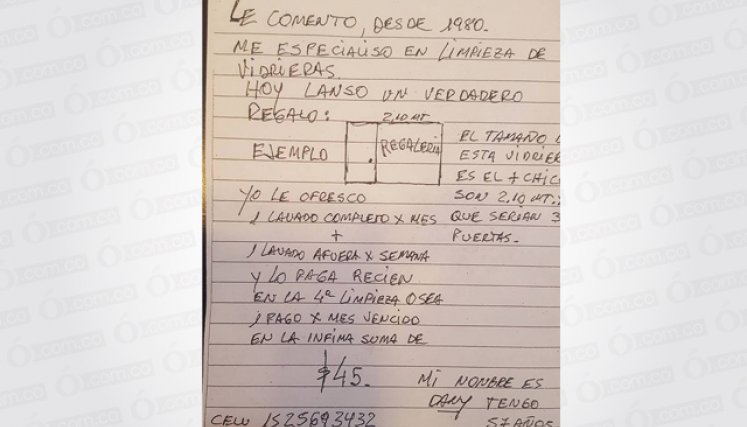 LE COMENTO, DESDE 1980.
ME ESPECIALISO EN LIMPIEZA DE
VIDRIERAS.
HOY LANSO UN VERDADERO
REGALO:
2,10 MT
EJEMPLO
REGALERIA
EL TAMAÑO
ESTA VIDRIER
ES EL + CHIC
SON 2,10 MT.:
QUE SERIAN 3
PUERTAS.
YO LE OFRESCO
1 LAVADO COMPLETO X MES
+
1 LAVADO AFUERA X SEMANA
Y LO PAGA RECIEN
EN LA 4ª LIMPIEZA OSEA
1 PAGO X MES VENCIDO
EN LA INFIMA SUMA DE
$45.
MI NOMBRE ES
DANY TENGO
57 AÑOS
CEL 1525693432